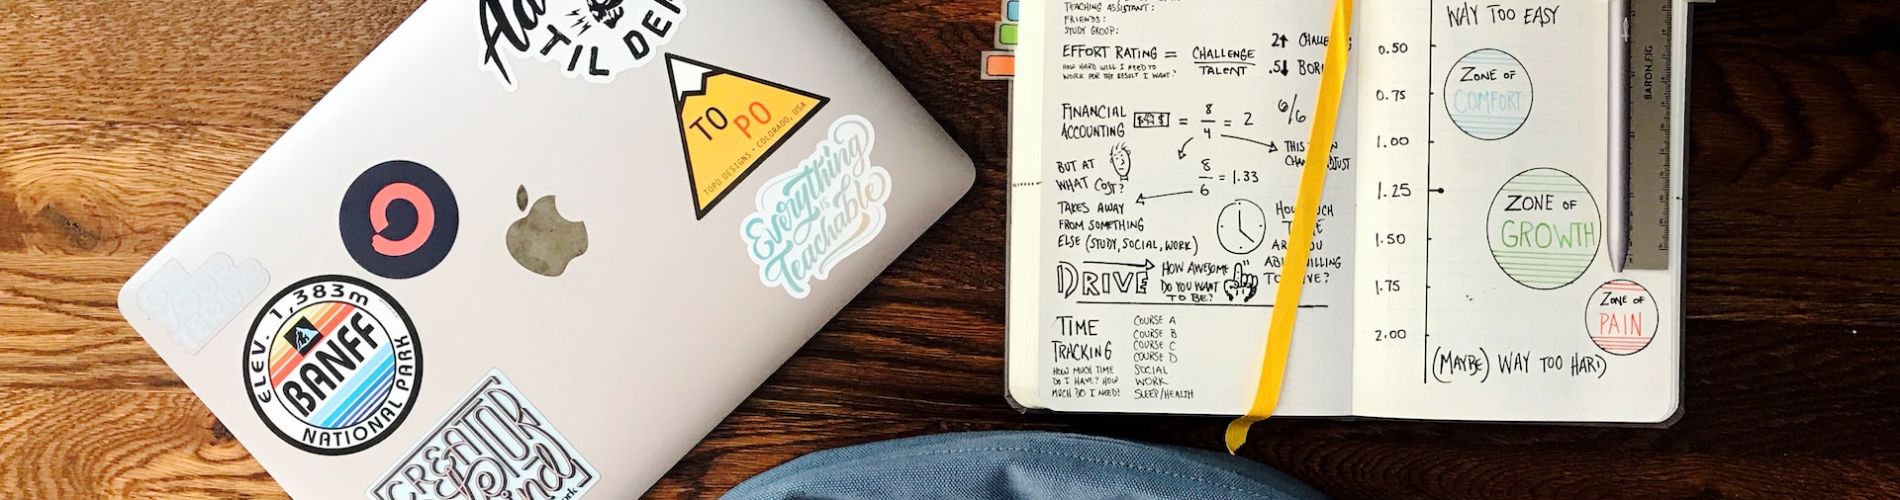 TIL DE
TO PO
TOPO DESIGNS • COLORADO, USA
Everything
is
Teachable
ON
YOUR
TERMS
ELEV. 1,383m
BANFF
NATIONAL PARK
CREATOR
TEACHING ASSISTANT:
FRIENDS:
STUDY GROUP:
EFFORT RATING = CHALLENGE
TALENT
HOW HARD WILL I NEED TO
WORK FOR THE RESULT I WANT?
2↑
.5↓
FINANCIAL
ACCOUNTING
= 8/4 = 2
6/6
THIS
BUT AT
WHAT COST?
8/6 = 1.33
TAKES AWAY
FROM SOMETHING
ELSE (STUDY, SOCIAL, WORK)
DRIVE
HOW AWESOME
DO YOU WANT
TO BE?
TIME
TRACKING
HOW MUCH TIME
DO I HAVE? HOW
MUCH DO I NEED?
COURSE A
COURSE B
COURSE C
COURSE D
SOCIAL
WORK
SLEEP/HEALTH
WAY TOO EASY
0.50
0.75
1.00
1.25
1.50
1.75
2.00
ZONE OF
COMFORT
ZONE OF
GROWTH
ZONE OF
PAIN
(MAYBE) WAY TOO HARD
BARON FIG